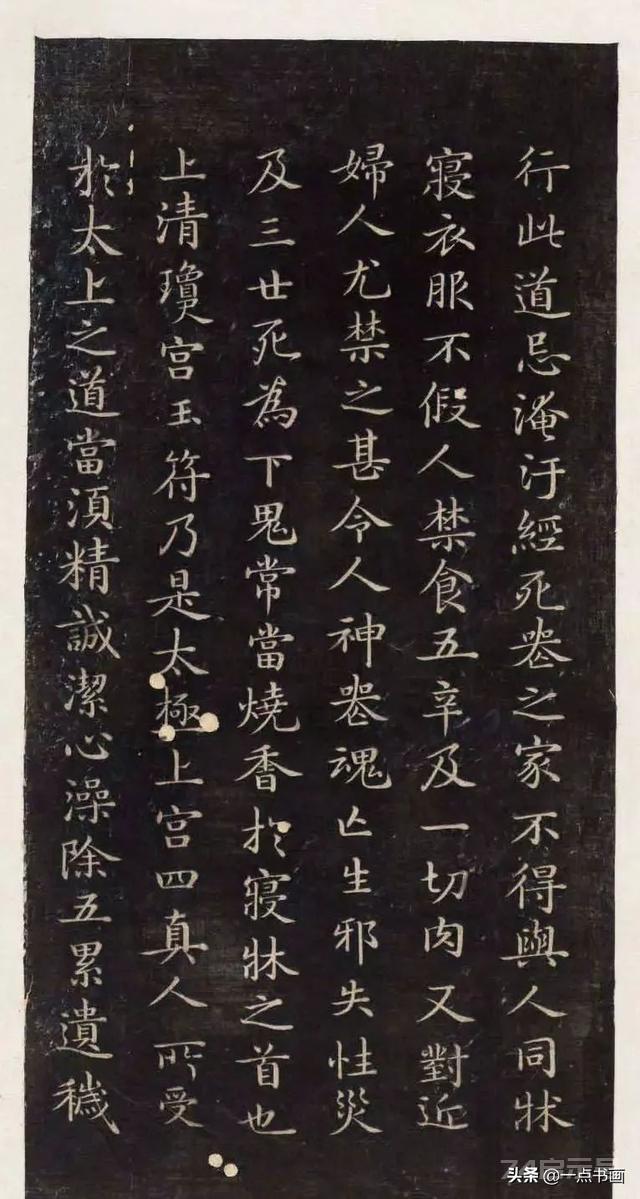 行此道忌淹汙經死喪之家不得與人同牀
寢衣服不假人禁食五辛及一切肉又對近
婦人尤禁之甚令人神喪魂亡生邪失性災
及三世死為下鬼常當燒香於寢牀之首也
上清瓊宮玉符乃是太極上宮四真人所受
於太上之道當須精誠潔心澡除五累遺穢
头条 @一点书画